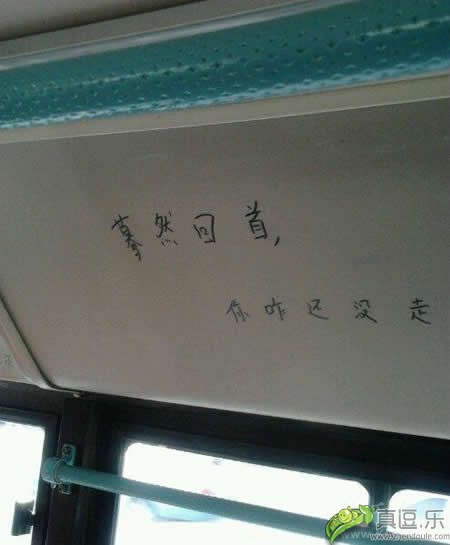 蓦然回首,
你咋还没走
真逗.乐
www.zhendoule.com